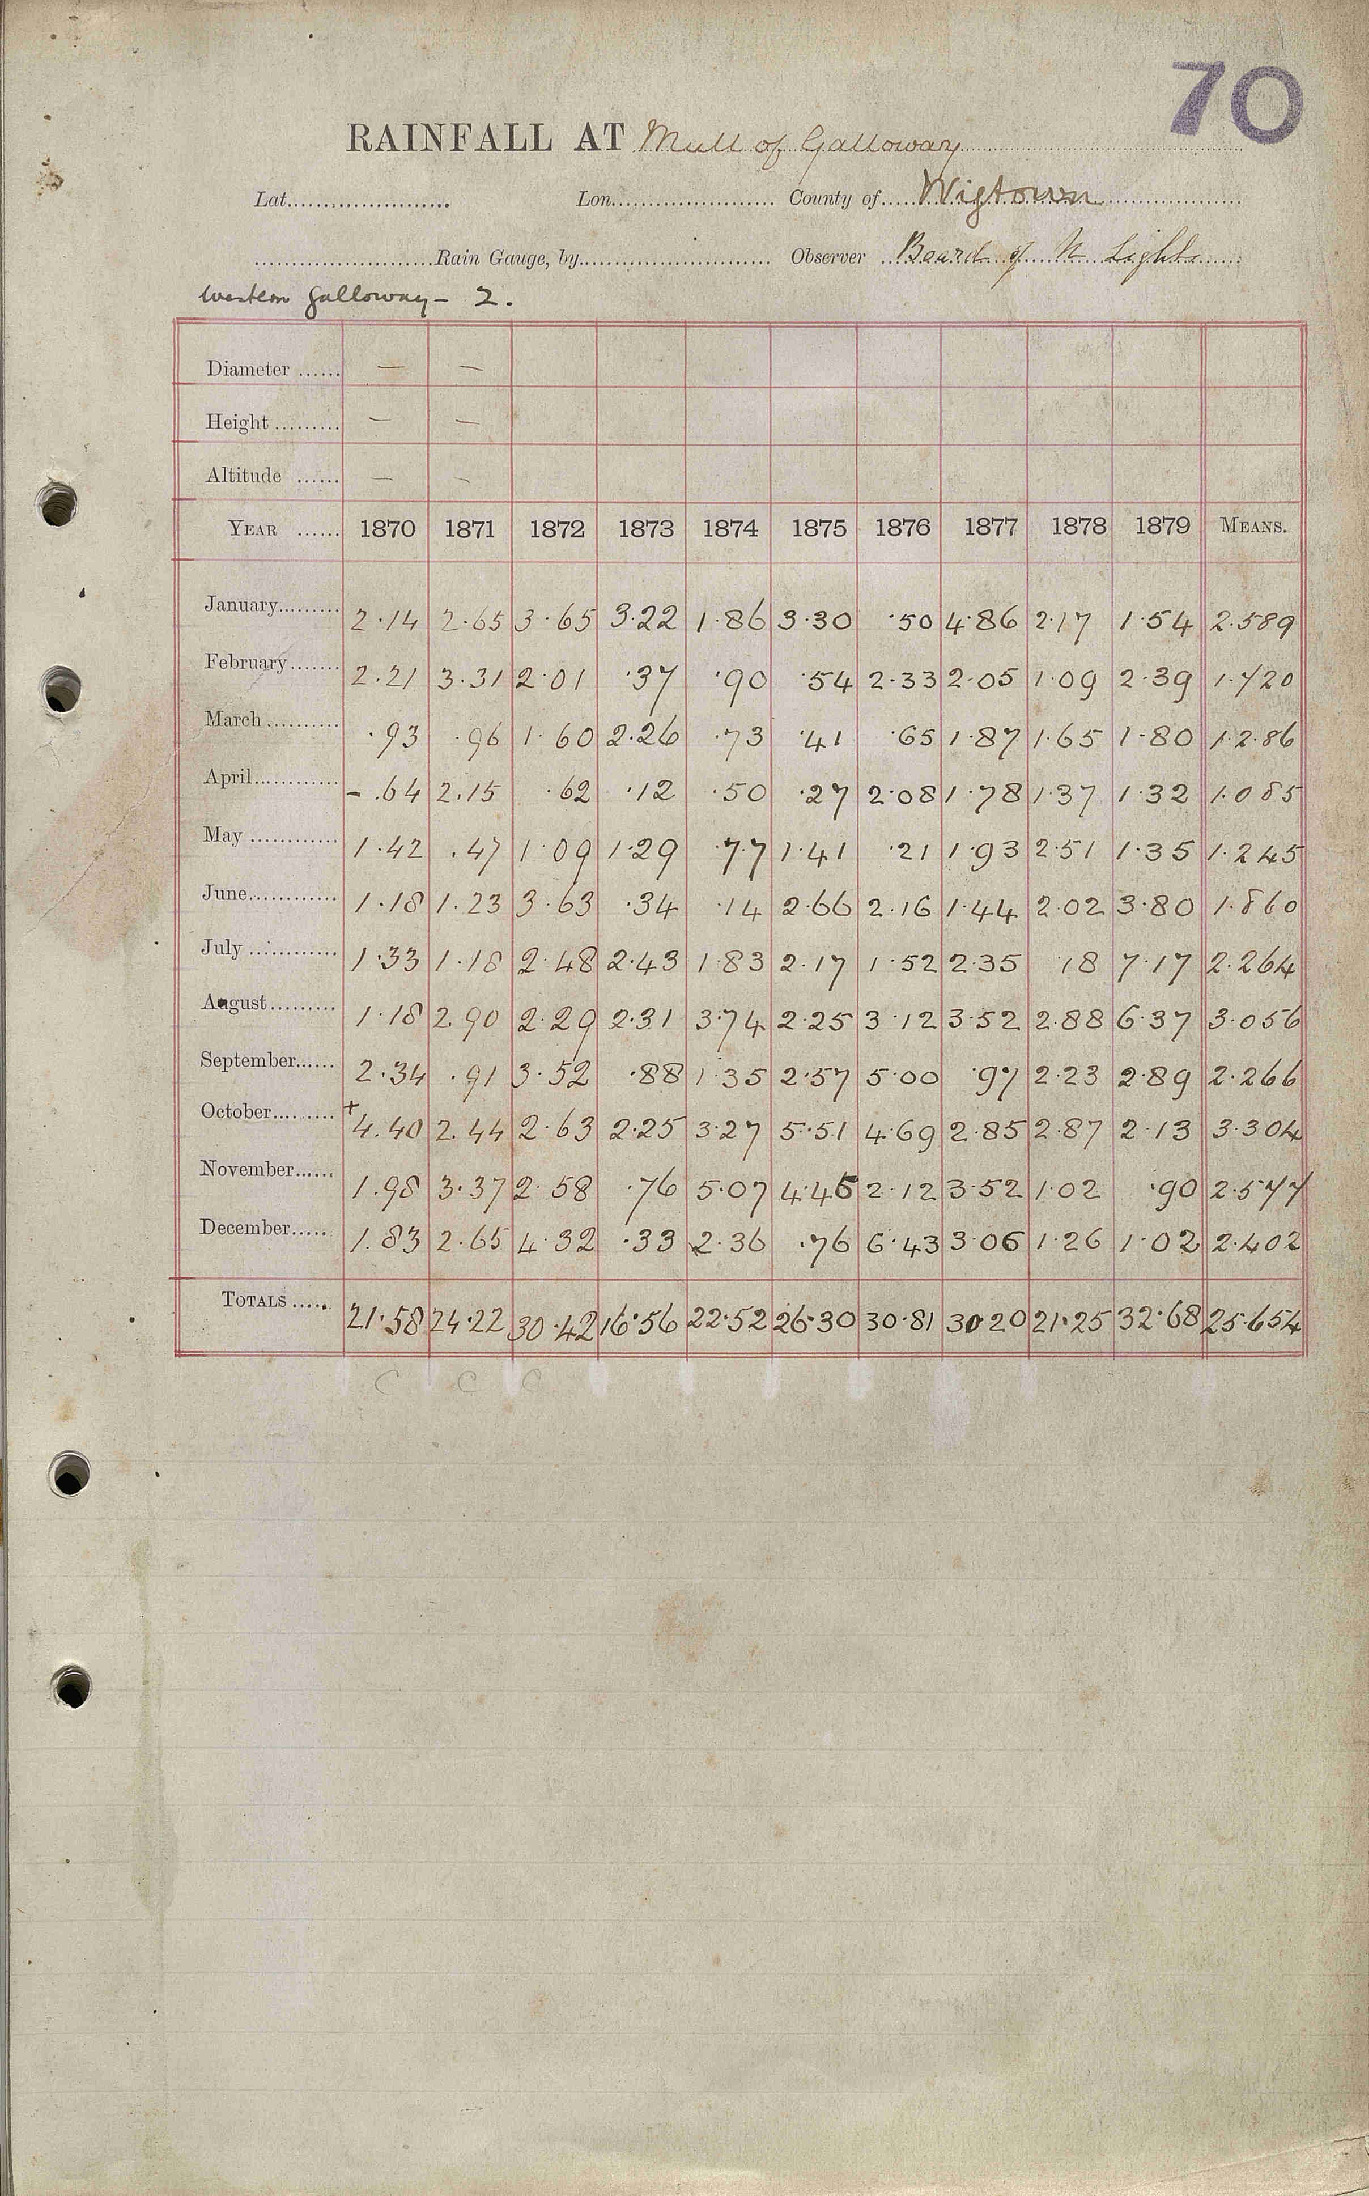 70
RAINFALL AT Mull of Galloway
Lat. Lon. County of Wigtown
Rain Gauge, by Observer Board of N Lights
Western Galloway - 2.
Diameter — —
Height — —
Altitude — —
YEAR 1870 1871 1872 1873 1874 1875 1876 1877 1878 1879 MEANS.
January 2.14 2.65 3.65 3.22 1.86 3.30 .50 4.86 2.17 1.54 2.589
February 2.21 3.31 2.01 .37 .90 .54 2.33 2.05 1.09 2.39 1.720
March .93 .96 1.60 2.26 .73 .41 .65 1.87 1.65 1.80 1.286
April - .64 2.15 .62 .12 .50 .27 2.08 1.78 1.37 1.32 1.085
May 1.42 .47 1.09 1.29 .77 1.41 .21 1.93 2.51 1.35 1.245
June 1.18 1.23 3.63 .34 .14 2.66 2.16 1.44 2.02 3.80 1.860
July 1.33 1.18 2.48 2.43 1.83 2.17 1.52 2.35 18 7.17 2.264
August 1.18 2.90 2.29 2.31 3.74 2.25 3.12 3.52 2.88 6.37 3.056
September 2.34 .91 3.52 .88 1.35 2.57 5.00 .97 2.23 2.89 2.266
October + 4.40 2.44 2.63 2.25 3.27 5.51 4.69 2.85 2.87 2.13 3.304
November 1.98 3.37 2.58 .76 5.07 4.45 2.12 3.52 1.02 .90 2.577
December 1.83 2.65 4.32 .33 2.36 .76 6.43 3.06 1.26 1.02 2.402
TOTALS 21.58 24.22 30.42 16.56 22.52 26.30 30.81 30.20 21.25 32.68 25.654
C C C